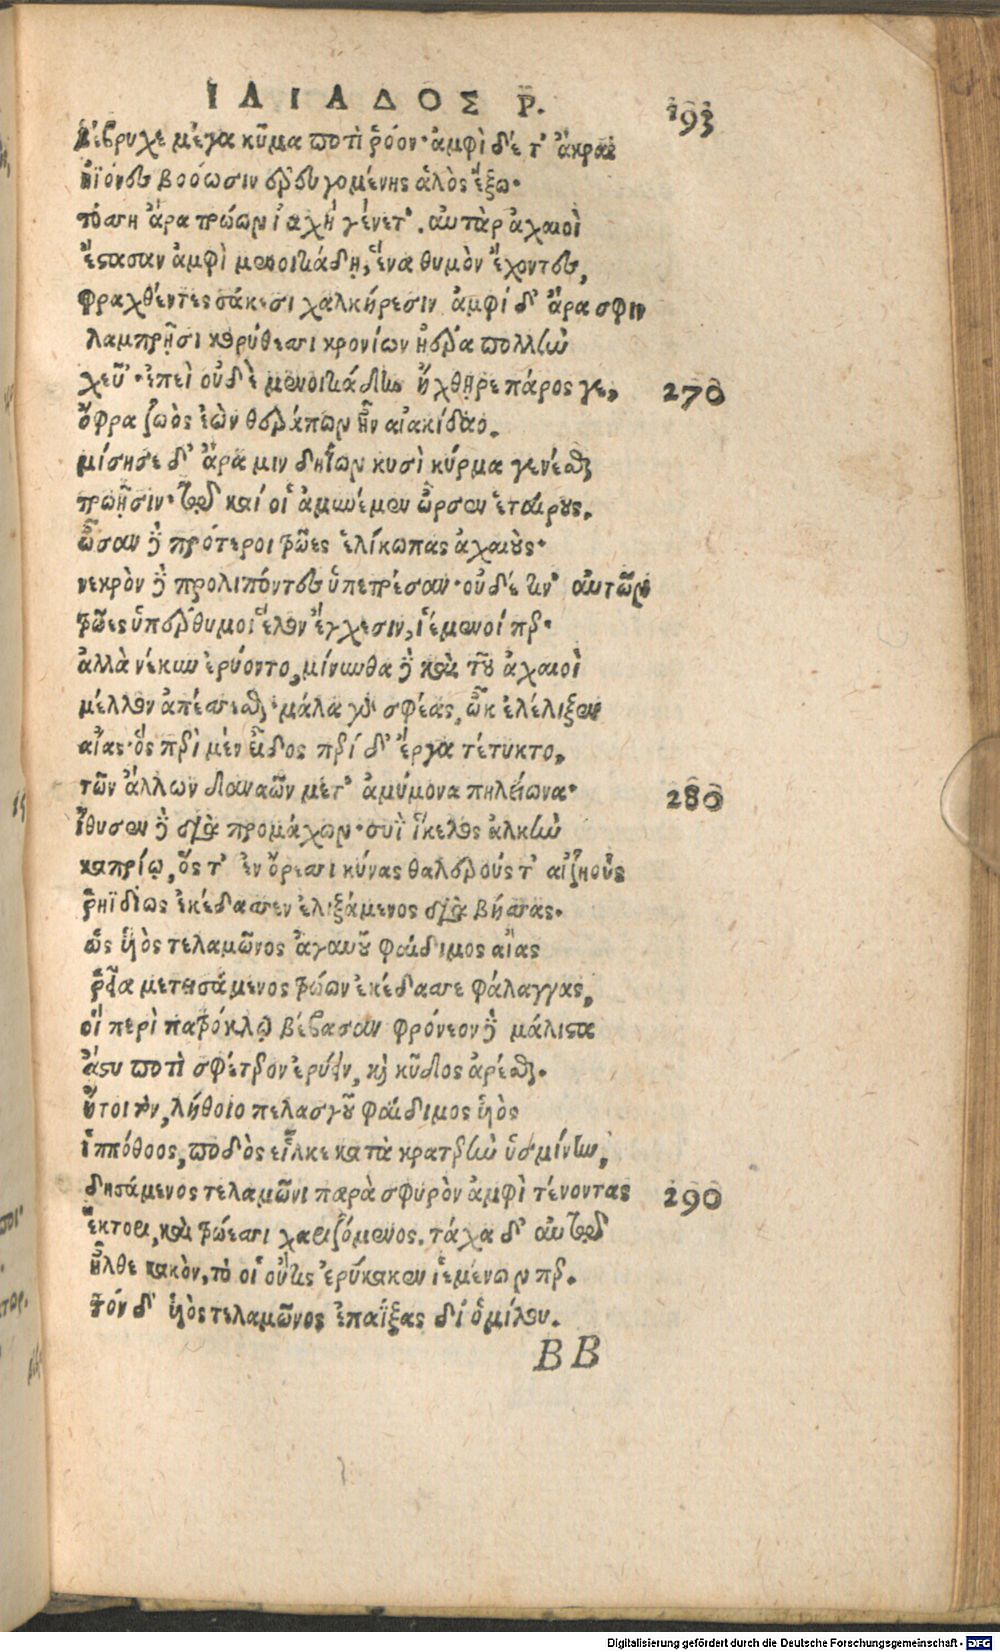 ΙΛΙΑΔΟΣ Ρ. 193
Βέβρυχε μέγα κῦμα ποτὶ ῥόον· ἀμφὶ δέ τ' ἄκραι
ἠϊόνες βοόωσιν ἐρευγομένης ἁλὸς ἔξω·
τόσση ἄρα τρώων ἰαχὴ γένετ'. αὐτὰρ ἀχαιοὶ
ἔστασαν ἀμφὶ μενοιτιάδῃ, ἕνα θυμὸν ἔχοντες,
φραχθέντες σάκεσι χαλκήρεσιν ἀμφί δ' ἄρα σφιν
λαμπρῇσι κορύθεσσι κρονίων ἠέρα πολλὴν
χεῦ'· ἐπεὶ οὐδὲ μενοιτιάδην ἤχθηρε πάρος γε, 270
ὄφρα ζωὸς ἐὼν θεράπων ἦν αἰακίδαο.
μίσησε δ' ἄρα μιν δηΐων κυσὶ κύρμα γενέσθαι
τρωῇσιν· τῷ καί οἱ ἀμυνέμεν ὦρσεν ἑταίρους.
ὦσαν δὲ πρότεροι τρῶες ἑλίκωπας ἀχαιούς·
νεκρὸν δὲ προλιπόντες ὑπετρέσαν· οὐδέ τιν' αὐτῶν
τρῶες ὑπέρθυμοι ἕλον ἔγχεσιν, ἱέμενοί περ·
ἀλλὰ νέκυν ἐρύοντο, μίνυνθα δὲ καὶ τοῦ ἀχαιοὶ
μέλλον ἀπέσσεσθαι· μάλα γάρ σφέας ὦκ' ἐλέλιξεν
αἴας· ὃς περὶ μὲν εἶδος περὶ δ' ἔργα τέτυκτο,
τῶν ἄλλων δαναῶν μετ' ἀμύμονα πηλείωνα· 280
ἴθυσεν δὲ διὰ προμάχων· συῒ ἴκελος ἀλκὴν
καπρίῳ, ὅς τ' ἐν ὄρεσσι κύνας θαλερούς τ' αἰζηοὺς
ῥηϊδίως ἐκέδασσεν ἑλιξάμενος διὰ βήσσας·
ὣς υἱὸς τελαμῶνος ἀγαυοῦ φαίδιμος αἴας
ῥεῖα μετεισάμενος τρώων ἐκέδασσε φάλαγγας,
οἳ περὶ πατρόκλῳ βέβασαν φρόνεον δὲ μάλιστα
ἄστυ ποτὶ σφέτερον ἐρύειν, καὶ κῦδος ἀρέσθαι·
ἤτοι τὸν, λήθοιο πελασγοῦ φαίδιμος υἱὸς
ἱππόθοος, ποδὸς εἷλκε κατὰ κρατερὴν ὑσμίνην,
δησάμενος τελαμῶνι παρὰ σφυρὸν ἀμφὶ τένοντας 290
ἕκτορι, καὶ τρώεσσι χαριζόμενος. τάχα δ' αὐτῷ
ἦλθε κακὸν, τό οἱ οὔτις ἐρύκακεν ἱεμένων περ.
τόν δ' υἱὸς τελαμῶνος ἐπαΐξας δι' ὁμίλου.
BB
Digitalisierung gefördert durch die Deutsche Forschungsgemeinschaft - DFG